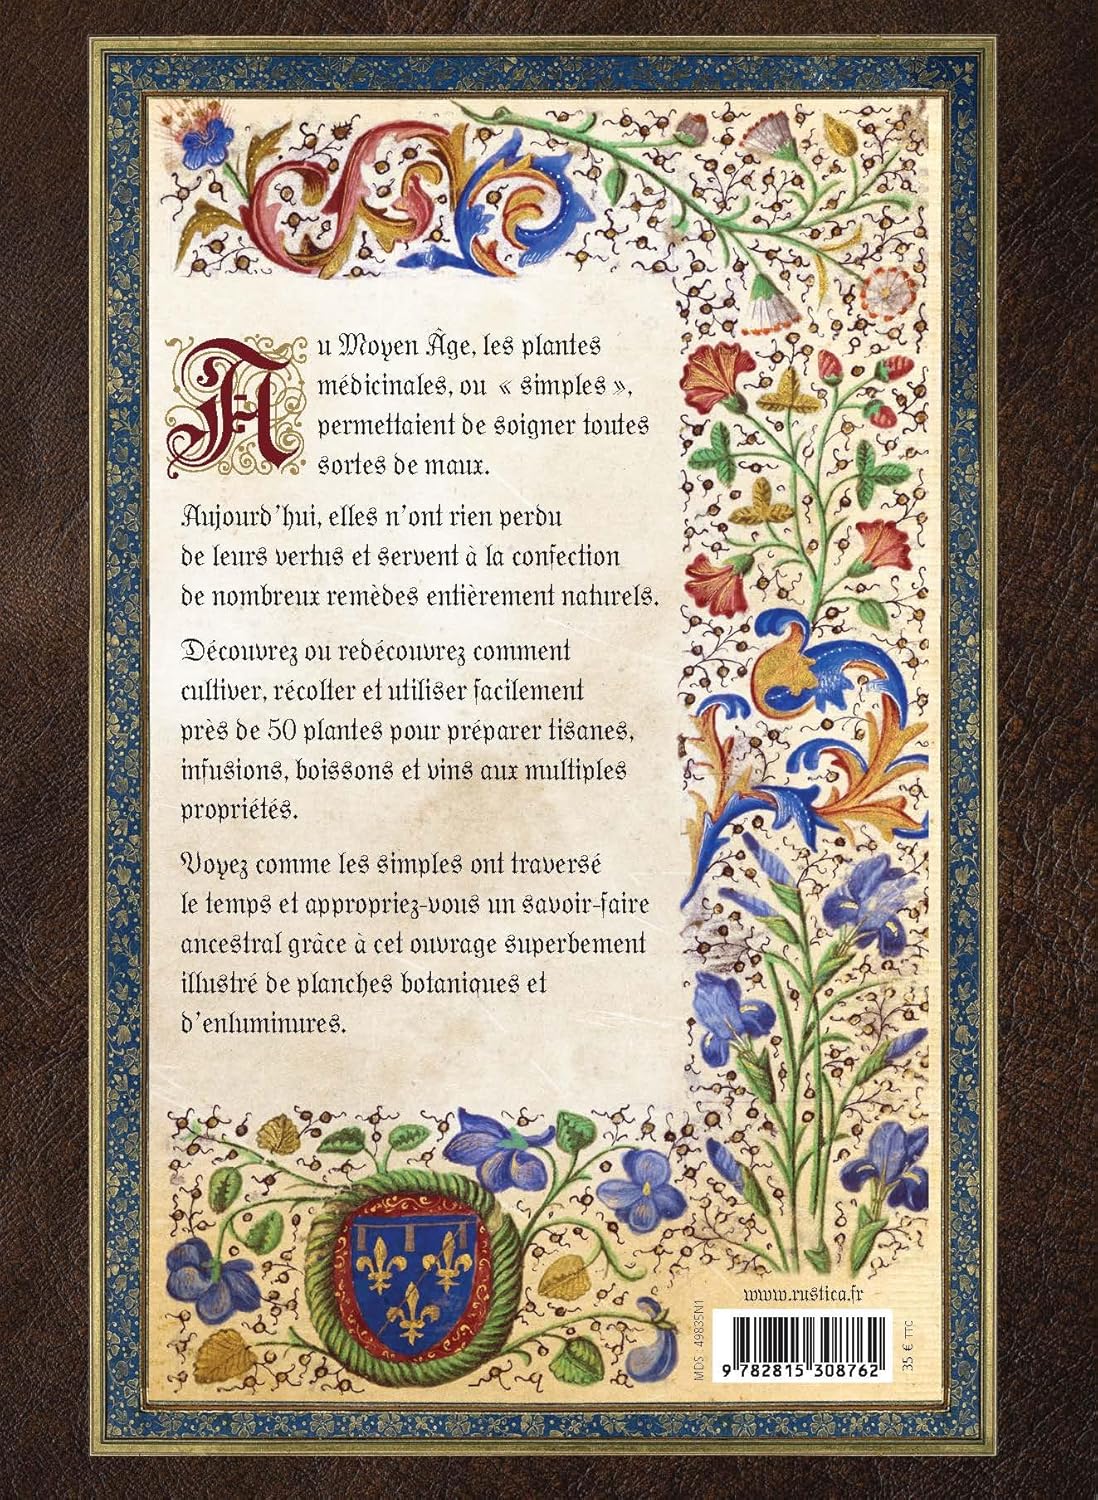 Au Moyen Âge, les plantes
médicinales, ou « simples »,
permettaient de soigner toutes
sortes de maux.
Aujourd'hui, elles n'ont rien perdu
de leurs vertus et servent à la confection
de nombreux remèdes entièrement naturels.
Découvrez ou redécouvrez comment
cultiver, récolter et utiliser facilement
près de 50 plantes pour préparer tisanes,
infusions, boissons et vins aux multiples
propriétés.
Voyez comme les simples ont traversé
le temps et appropriez-vous un savoir-faire
ancestral grâce à cet ouvrage superbement
illustré de planches botaniques et
d'enluminures.
www.rustica.fr
MDS : 49835N1
9 782815 308762
35 € TTC